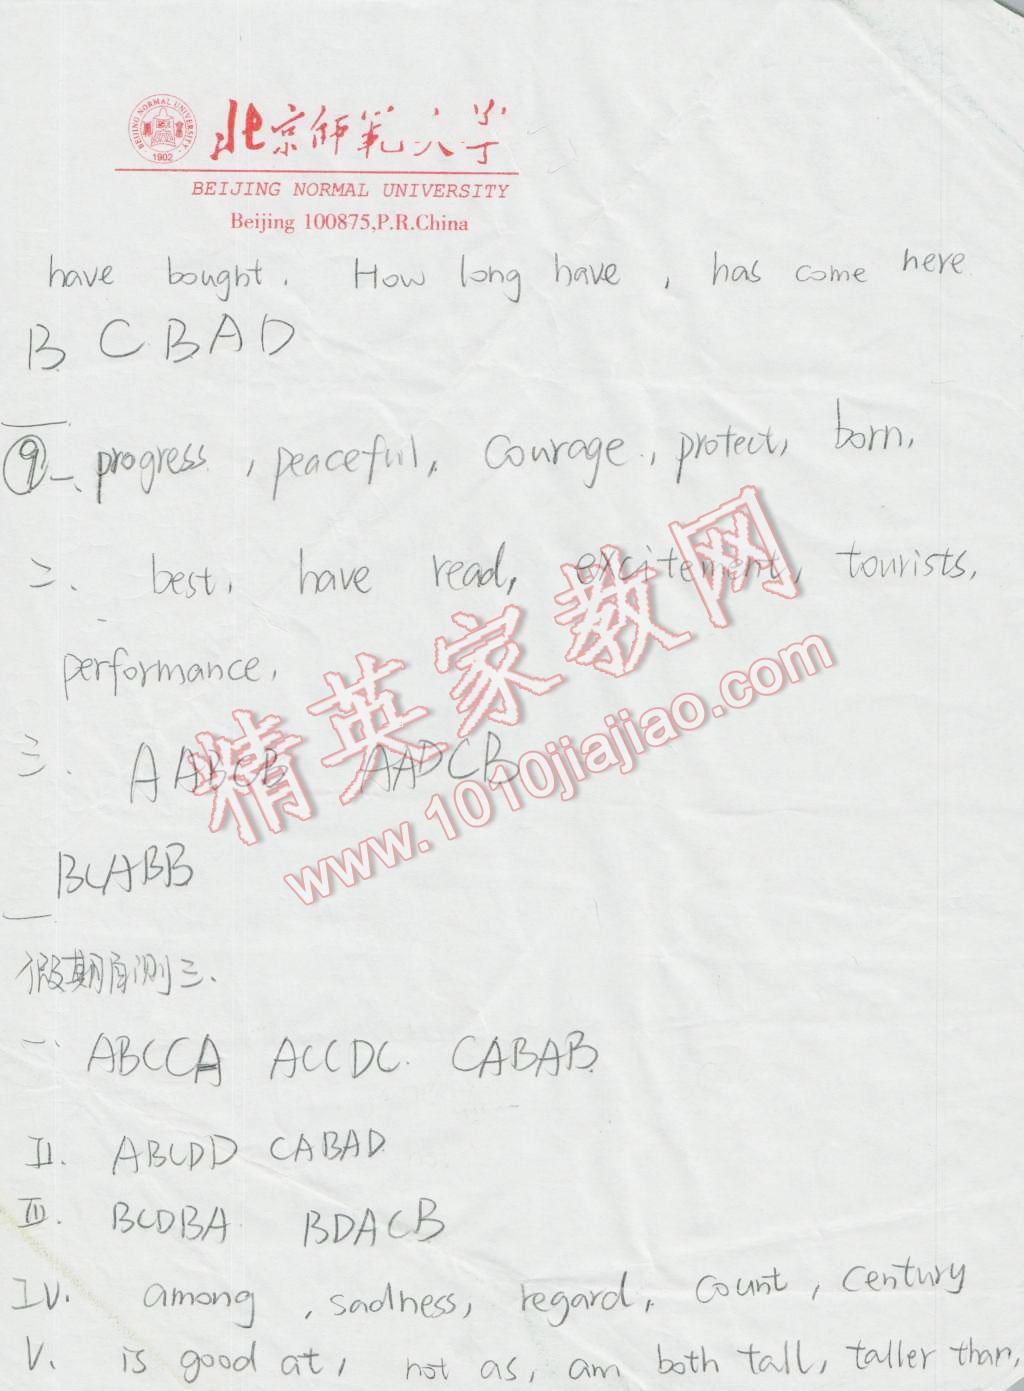 BEIJING NORMAL UNIVERSITY
1902
北京师范大学
BEIJING NORMAL UNIVERSITY
Beijing 100875,P.R.China
have bought. How long have, has come here
B C B A D
⑨ 一、progress, peaceful, courage, protect, born,
二、best, have read, excitement, tourists,
performance,
三、AABCB AADCB
BCABB
假期自测三、
一、ABCCA ACCDC. CABAB
II. ABCDD CABAD
III. BCDBA BDACB
IV. among, sadness, regard, count, century
V. is good at, not as, am both tall, taller than,
精英家教网
www.1010jiajiao.com